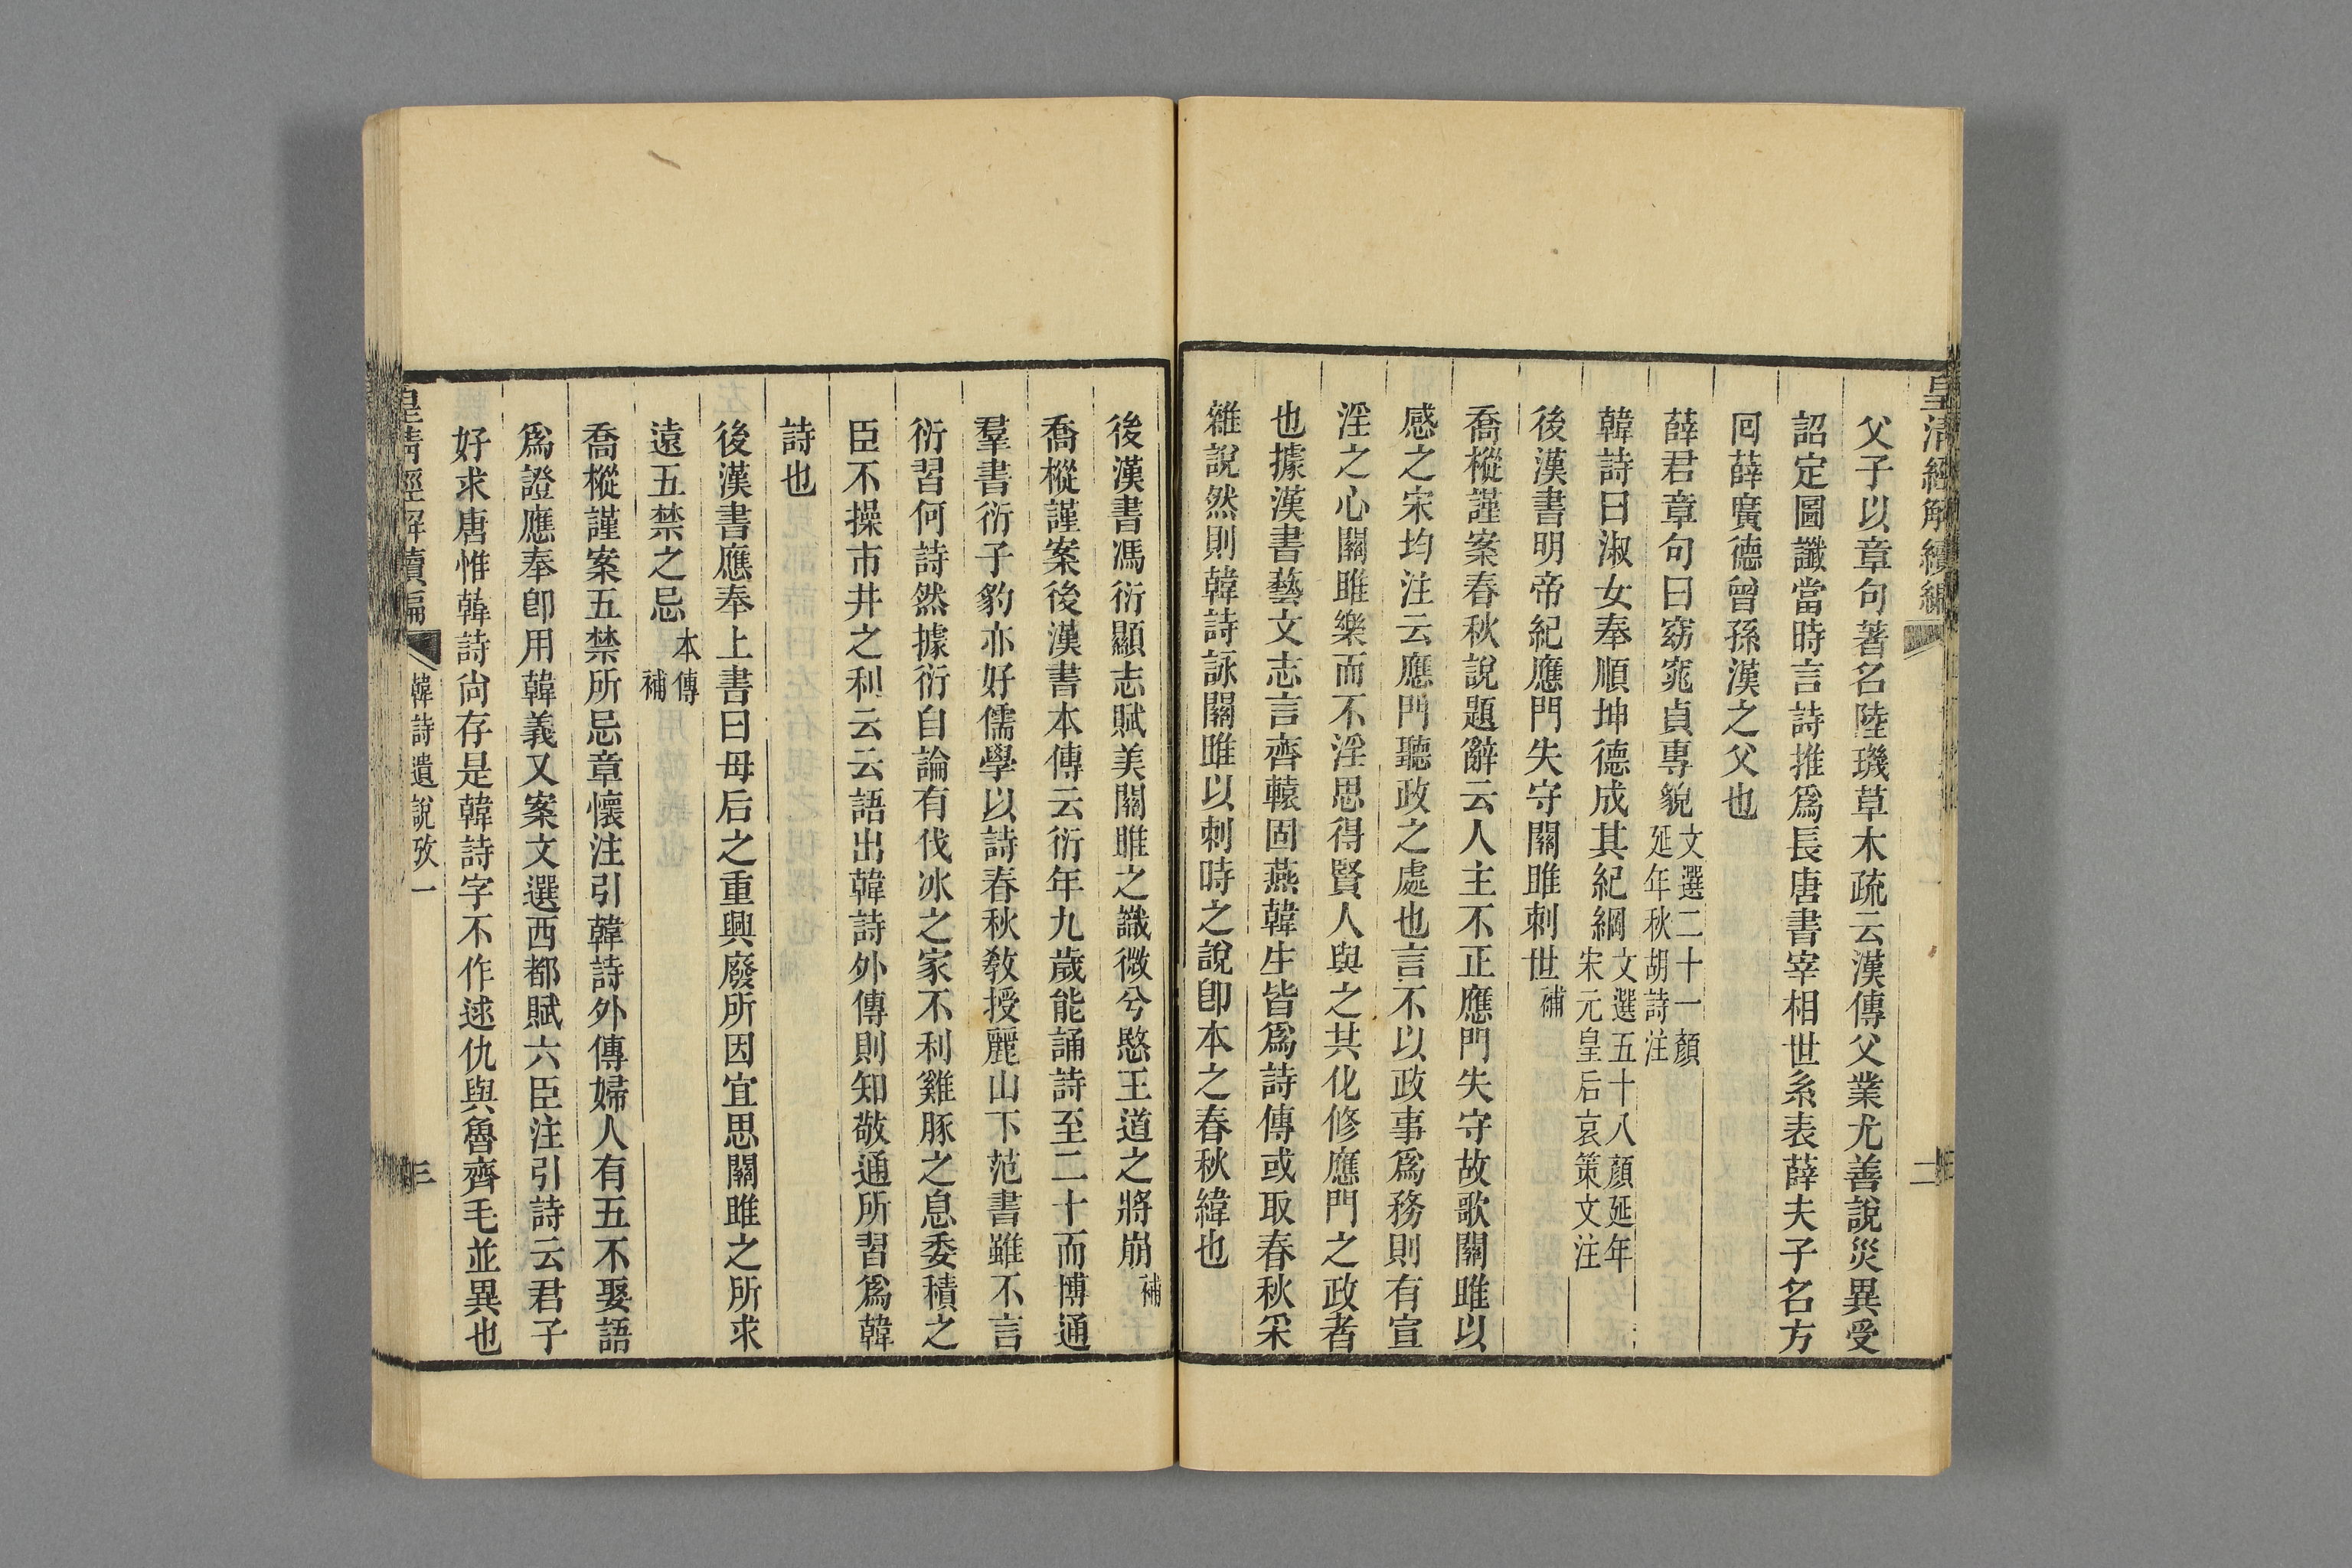 皇清經解續編
二
父子以章句著名陸璣草木疏云漢傳父業尤善說災異受
詔定圖讖當時言詩推爲長唐書宰相世系表薛夫子名方
囘薛廣德曾孫漢之父也
薛君章句曰窈窕貞專貌文選二十一顏
延年秋胡詩注
韓詩曰淑女奉順坤德成其紀綱文選五十八顏延年
宋元皇后哀策文注
後漢書明帝紀應門失守關雎刺世補
喬樅謹案春秋說題辭云人主不正應門失守故歌關雎以
感之宋均注云應門聽政之處也言不以政事爲務則有宣
淫之心關雎樂而不淫思得賢人與之共化修應門之政者
也據漢書藝文志言齊轅固燕韓生皆爲詩傳或取春秋采
雜說然則韓詩詠關雎以刺時之說卽本之春秋緯也
後漢書馮衍顯志賦美關雎之識微兮愍王道之將崩補
喬樅謹案後漢書本傳云衍年九歲能誦詩至二十而博通
羣書衍子豹亦好儒學以詩春秋敎授麗山下范書雖不言
衍習何詩然據衍自論有伐冰之家不利雞豚之息委積之
臣不操市井之利云云語出韓詩外傳則知敬通所習爲韓
詩也
後漢書應奉上書曰母后之重興廢所因宜思關雎之所求
遠五禁之忌本傳
補
喬樅謹案五禁所忌章懷注引韓詩外傳婦人有五不娶語
爲證應奉卽用韓義又案文選西都賦六臣注引詩云君子
好求唐惟韓詩尙存是韓詩字不作逑仇與魯齊毛並異也
皇清經解續編
韓詩遺說攷一
三